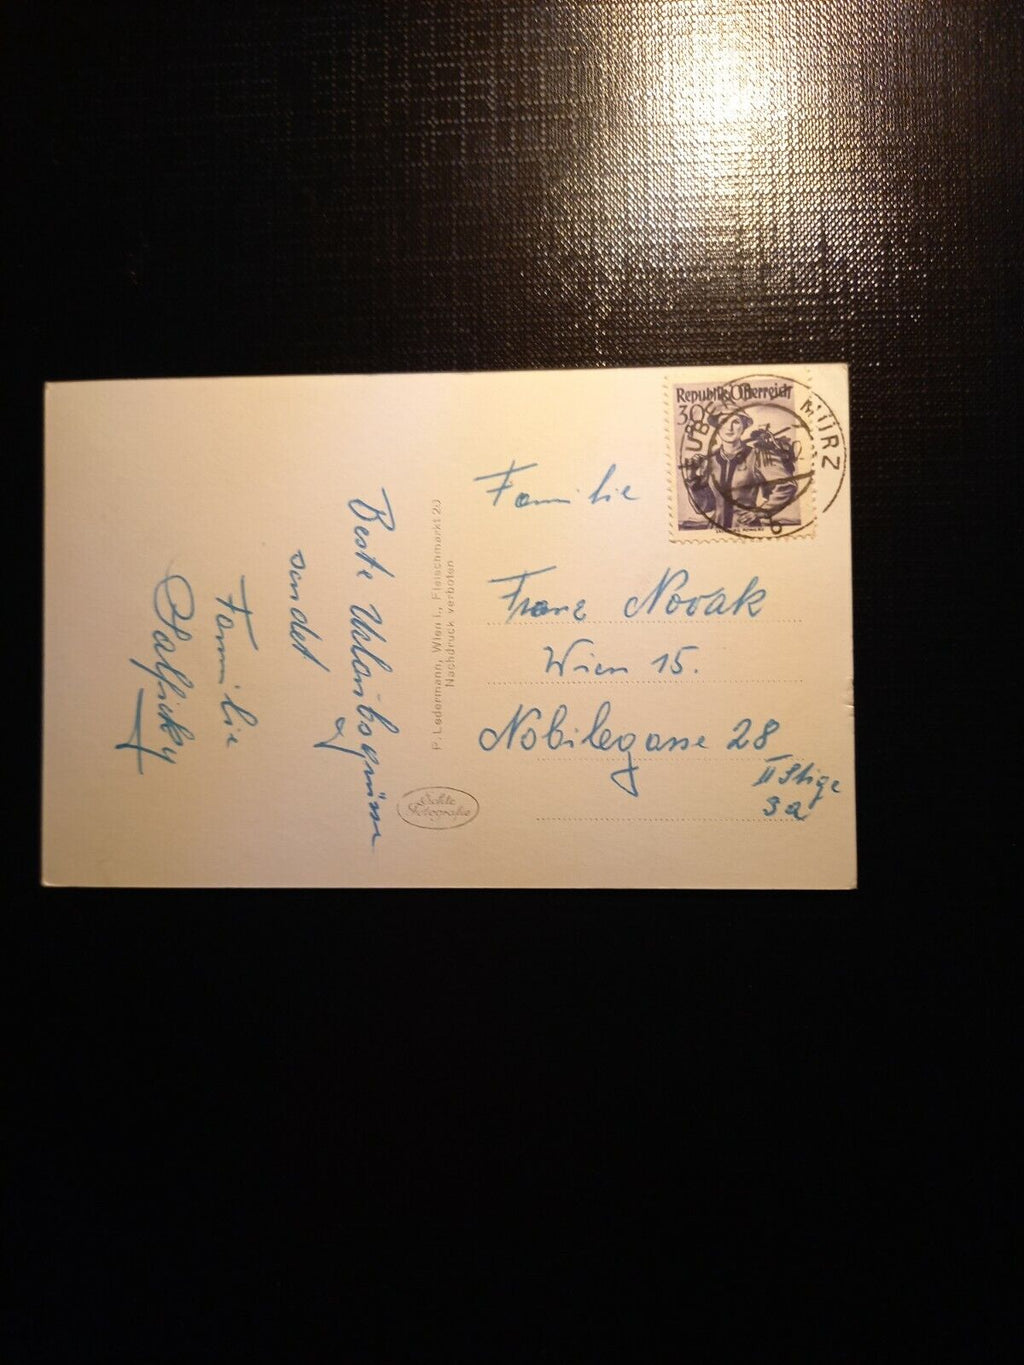 Beste Urlaubsgrüsse
sendet
Familie
P. Ledermann, Wien I., Fleischmarkt 20
Nachdruck verboten
Echte
Fotografie
Republik Österreich
30
NEUBERG MÜRZ
b
Familie
Franz Novak
Wien 15.
Nobilegasse 28
II Stige